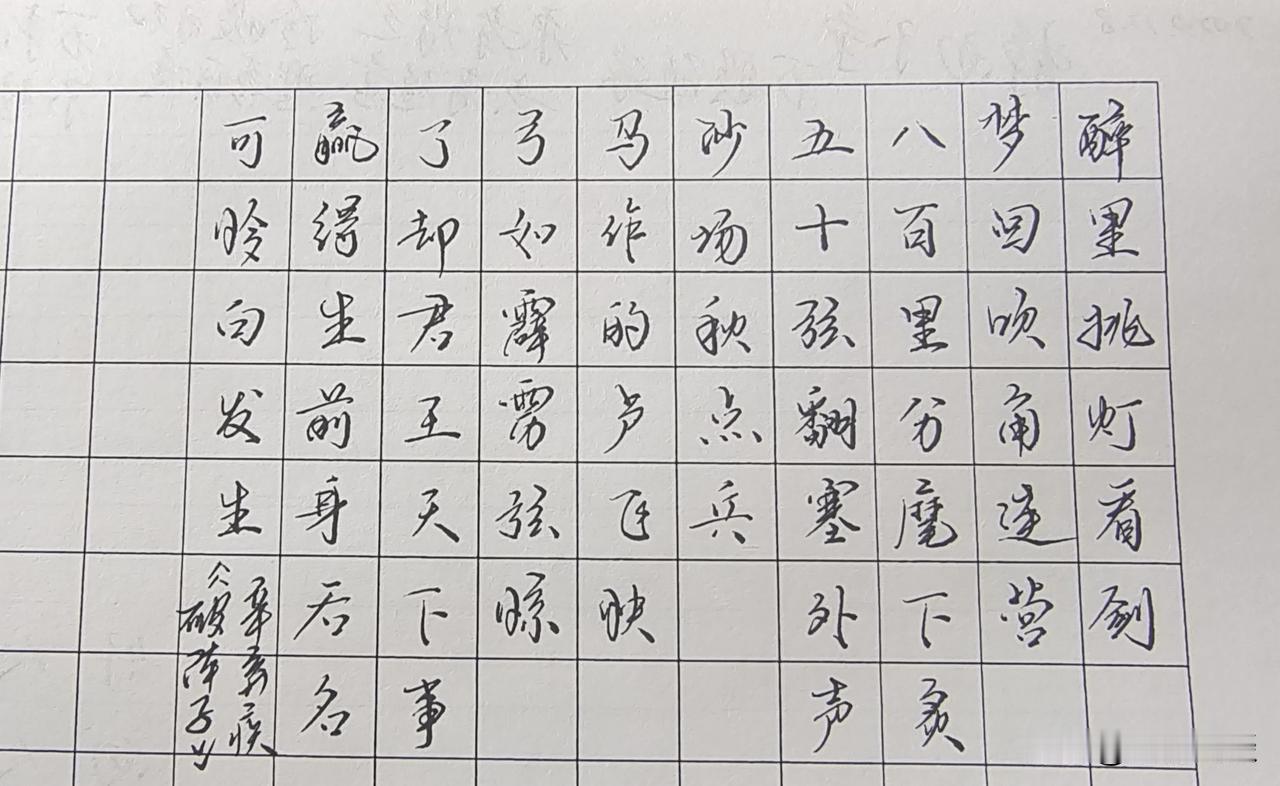 醉里挑灯看剑
梦回吹角连营
八百里分麾下炙
五十弦翻塞外声
沙场秋点兵
马作的卢飞快
弓如霹雳弦惊
了却君王天下事
赢得生前身后名
可怜白发生
辛弃疾
《破阵子》